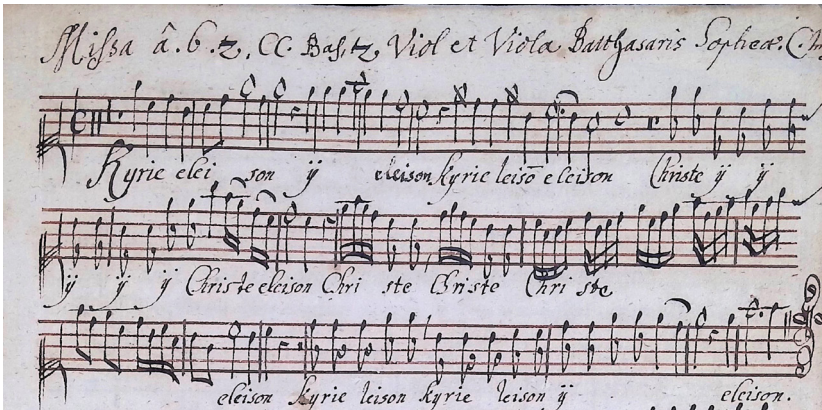 Missa â. 6. 2. CC. Bass. 2. Viol et Viola Balthasaris
Kyrie elei son ÿ eleison kyrie leisõ eleison Christe ÿ ÿ
ÿ ÿ ÿ Christe eleison Chri ste Christe Chri ste
eleison kyrie leison kyrie leison ÿ eleison.